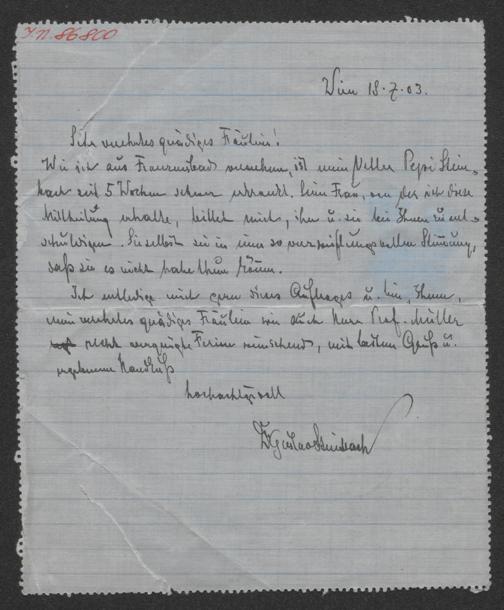 I.N. 86800
Wien 18.7.03.
Sehr verehrtes gnädiges Fräulein!
Wie ich aus Franzensbad vernehme, ist mein Vetter Pepi Stein-
bach seit 5 Wochen schwer erkrankt. Seine Frau, von der ich diese
Mittheilung erhalte, bittet mich, ihn u. sie bei Ihnen zu ent-
schuldigen. Sie selbst sei in einer so verzweiflungsvollen Stimmung,
daß sie es nicht habe thun können.
Ich entledige mich gern dieses Auftrages u. bin, Ihnen,
mein verehrtes gnädiges Fräulein wie auch Herrn Prof. Müller
recht vergnügte Ferien wünschend, mit bestem Gruß u.
ergebenem Handkuß
hochachtungsvoll
Dr Gustav Steinbach